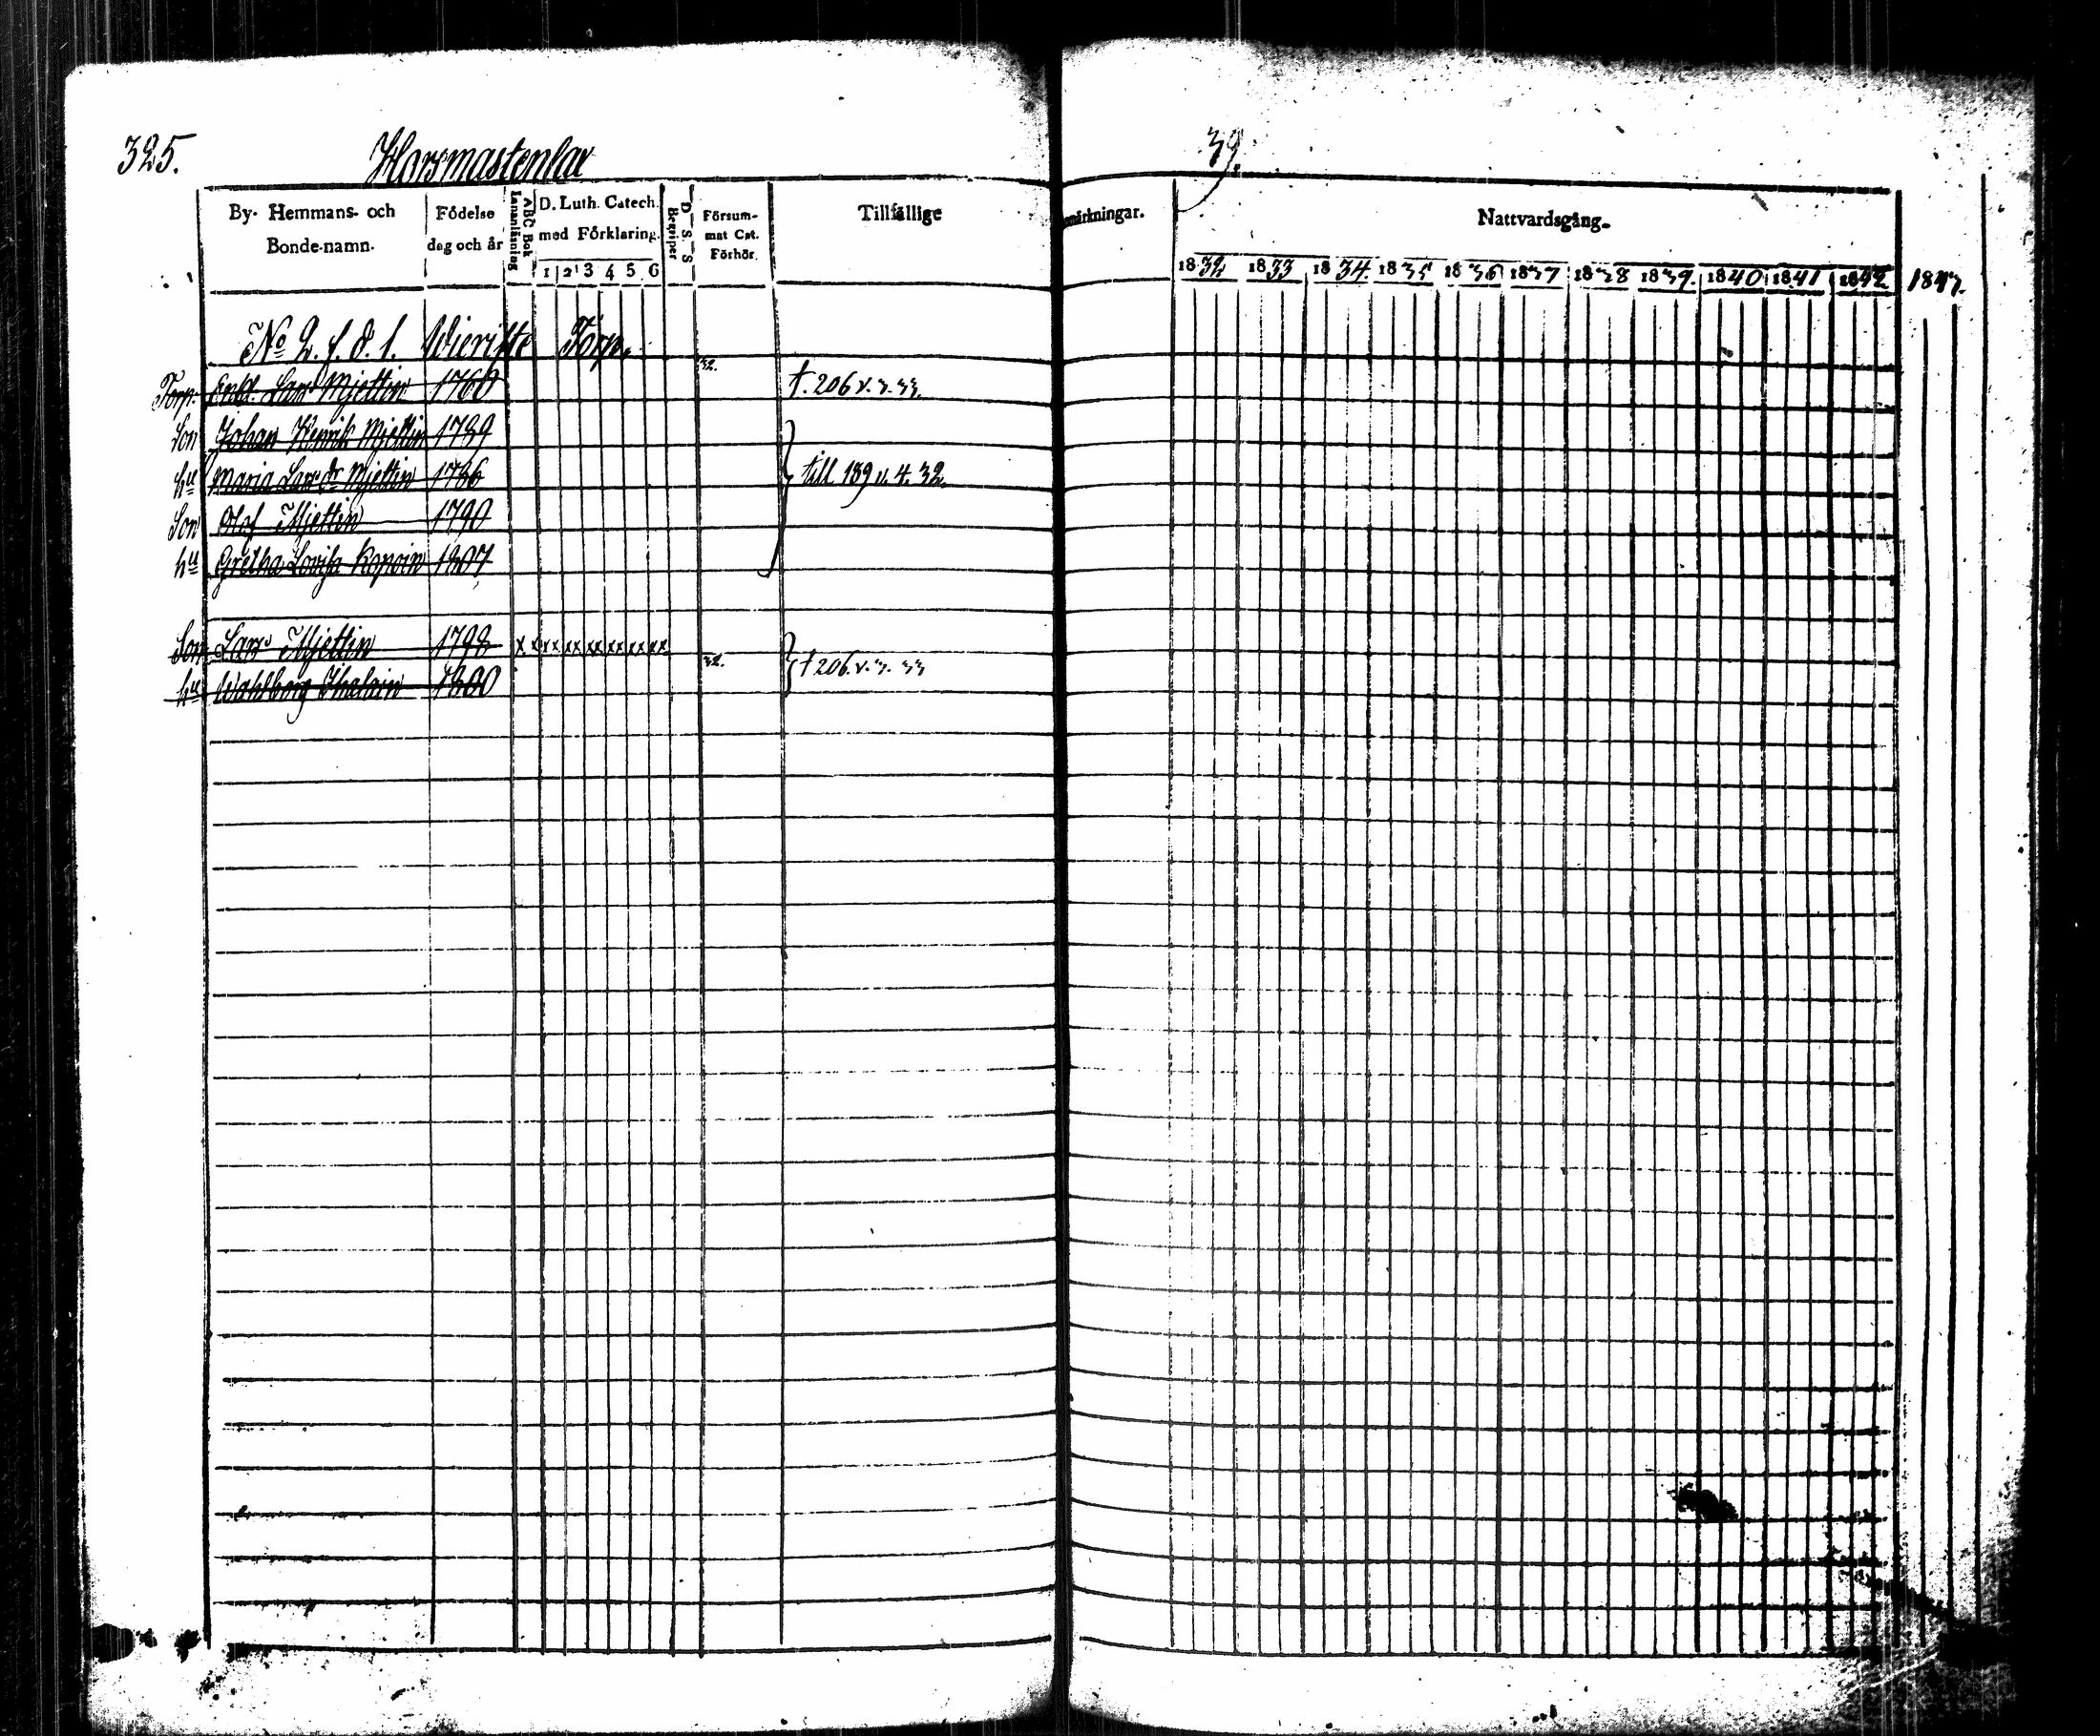 325. Horsmastenlax 39.
By- Hemmans- och Bonde-namn.
Födelse dag och år
Innanläsning
ABC Bok
D. Luth. Catech. med Förklaring.
1 2 3 4 5 6
D. S. S.
Begriper
Försummat Cat. Förhör.
Tillfällige
märkningar.
Nattvardsgång.
1832 1833 1834. 1835 1836 1837 1838 1839. 1840 1841 1842 1843.
No 2. f. d. 1. Torp.
Torp. Enkl. Lars Mjettin 1760 32. t. 206 v. 3. 33.
Son Johan Henrik Mjettin 1789
hu Maria Larsdr Mjettin 1786 till 139 v. 4. 32.
Son Olof Mjettin 1790
hu Gretha Lovisa Kopoin 1807
Son Lars Mjettin 1798 x x xx xx xx xx xx xx
hu Wahlborg Ihalain 1800 32. t 206. v. 3. 33